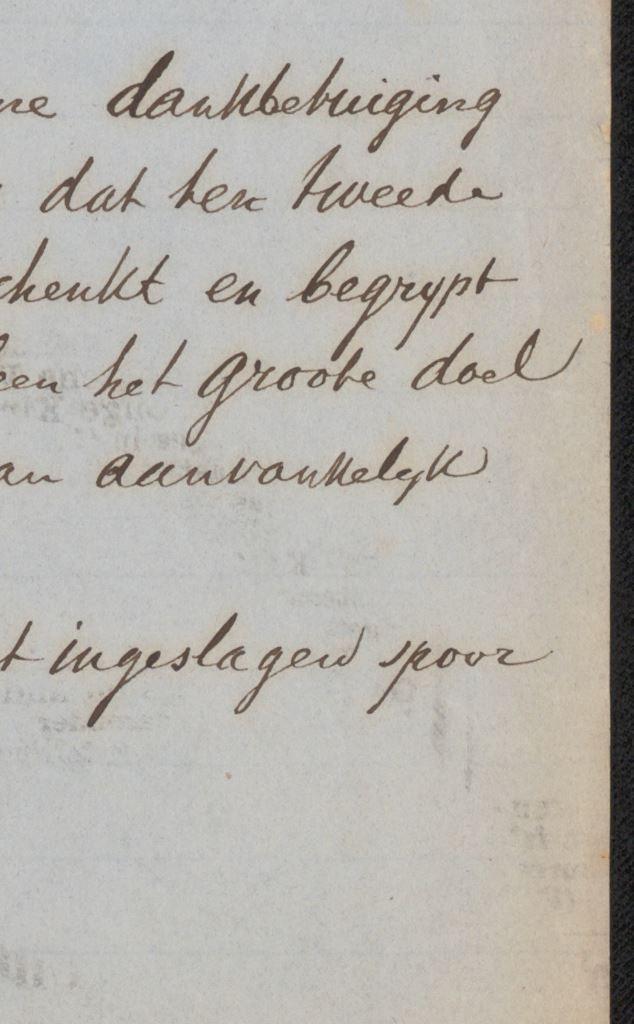 ne dankbetuiging
dat ten tweede
chenkt en begrypt
een het groote doel
an aanvankelyk
t ingeslagen spoor